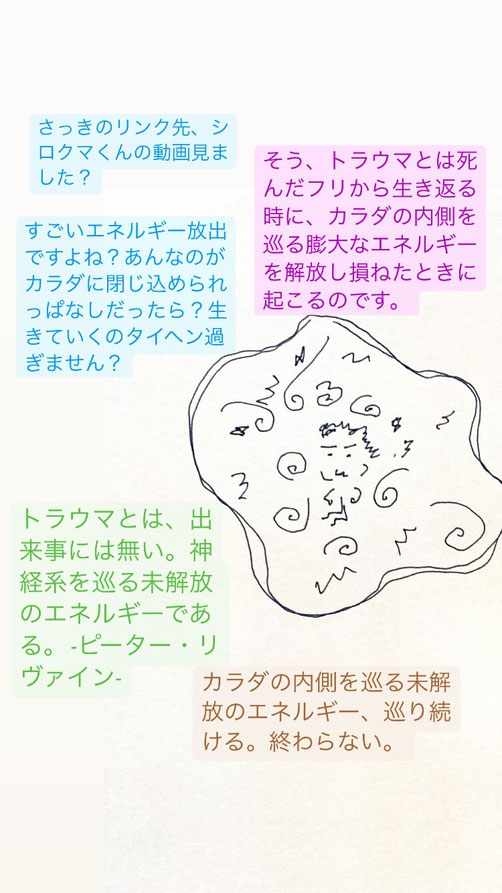 さっきのリンク先、シ
ロクマくんの動画見ま
した？
そう、トラウマとは死
んだフリから生き返る
時に、カラダの内側を
巡る膨大なエネルギー
を解放し損ねたときに
起こるのです。
すごいエネルギー放出
ですよね？あんなのが
カラダに閉じ込められ
っぱなしだったら？生
きていくのタイヘン過
ぎません？
トラウマとは、出
来事には無い。神
経系を巡る未解放
のエネルギーであ
る。-ピーター・リ
ヴァイン-
カラダの内側を巡る未解
放のエネルギー、巡り続
ける。終わらない。